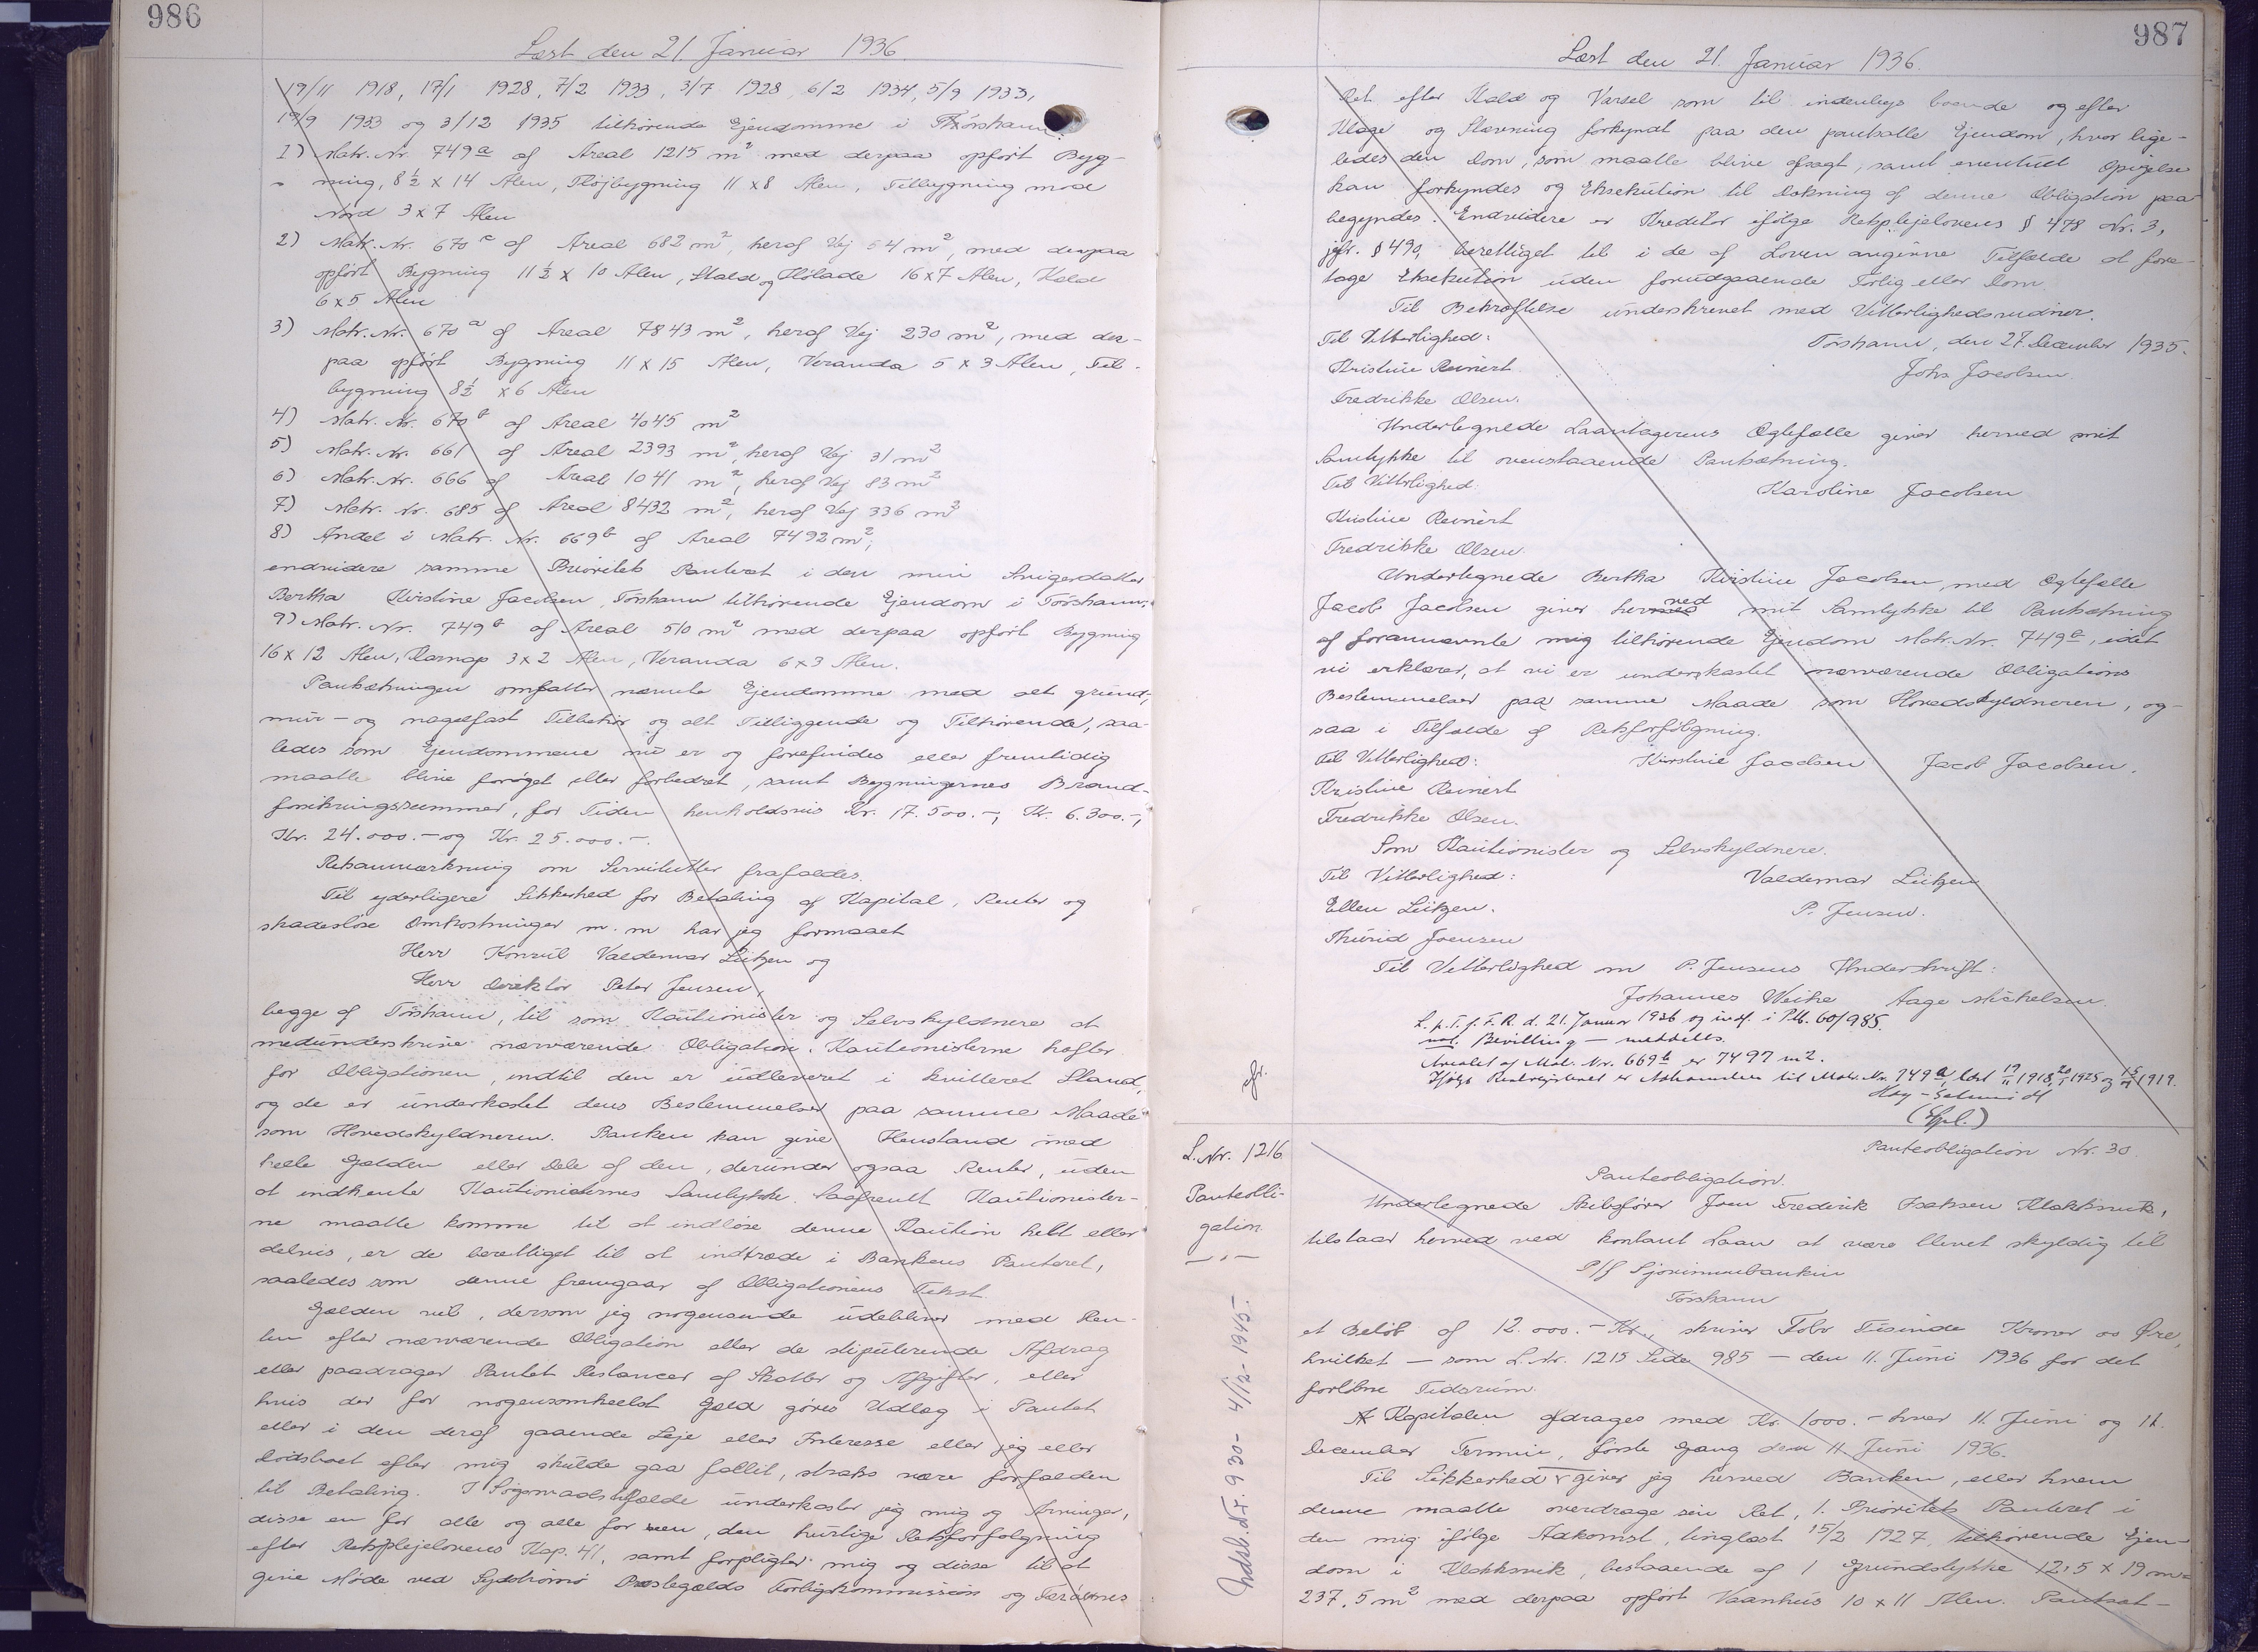 986
Læst den 21. Januar 1936.
19/11 1918, 17/1 1928, 7/2 1933, 3/7 1928, 6/2 1934, 5/9 1933,
19/9 1933 og 3/12 1935 tilhörende Ejendomme i Thorshavn:
1) Matr. Nr. 749a af Areal 1215 m2 med derpaa opfört Byg-
ning, 8½ x 14 Alen, Fløjbygning 11 x 8 Alen, Tilbygning mod
Nord 3 x 7 Alen
2) Matr. Nr. 670c af Areal 682 m2, heraf Vej 54 m2, med derpaa
opfört Bygning 11½ x 10 Alen, Stald og Hølade 16 x 7 Alen, Stald
6 x 5 Alen
3) Matr. Nr. 670a af Areal 7843 m2, heraf Vej 230 m2, med der-
paa opført Bygning 11 x 15 Alen, Veranda 5 x 3 Alen, Til-
bygning 8½ x 6 Alen
4) Matr. Nr. 670b af Areal 4045 m2
5) Matr. Nr. 661 af Areal 2393 m2, heraf Vej 31 m2
6) Matr. Nr. 666 af Areal 1041 m2, heraf Vej 83 m2
7) Matr. Nr. 685 af Areal 8432 m2, heraf Vej 336 m2
8) Andel i Matr. Nr. 669b af Areal 7492 m2;
endvidere samme Prioritets Panteret i den min Svigerdatter
Bertha Kirstine Jacobsen, Tórshavn tilhörende Ejendom i Tórshavn:
9) Matr. Nr. 749b af Areal 510 m2 med derpaa opfört Bygning
16 x 12 Alen, Karnap 3 x 2 Alen, Veranda 6 x 3 Alen.
Pantsætningen omfatter nævnte Ejendomme med alt grund,
mur- og nagelfast Tilbehör og alt Tilliggende og Tilhörende, saa-
ledes som Ejendommene nu er og forefindes eller fremtidig
maatte blive forøget eller forbedret, samt Bygningernes Brand-
forsikringssummer, for Tiden henholdsvis Kr. 17.500.-, Kr. 6.300.-,
Kr. 24.000.- og Kr. 25.000.-.
Retsanmærkning om Servitutter frafaldes.
Til yderligere Sikkerhed for Betaling af Kapital, Renter og
skadesløse Omkostninger m. m har jeg formaaet
Herr Konsul Valdemar Lützen og
Herr Direktör Peter Jensen,
begge af Tórshavn, til som Kautionister og Selvskyldnere at
medunderskrive nærværende Obligation. Kautionisterne hæfter
for Obligationen, indtil den er udleveret i kvitteret Stand,
og de er underkastet dens Bestemmelser paa samme Maade
som Hovedskyldneren. Banken kan give Henstand med
hele Gælden eller Dele af den, derunder ogsaa Renter, uden
at indhente Kautionisternes Samtykke. Saafremt Kautionister-
ne maatte komme til at indløse denne Kaution helt eller
delvis, er de berettiget til at indtræde i Bankens Panteret,
saaledes som denne fremgaar af Obligationens Tekst.
Gælden vil, dersom jeg nogensinde udebliver med Ren-
ten efter nærværende Obligation eller de stipulerende Afdrag
eller paadrager Pantet Restancer af Skatter og Afgifter, eller
hvis der for nogensomhelst Gæld göres Udlæg i Pantet
eller i den deraf gaaende Leje eller Interesse eller jeg eller
Dödsboet efter mig skulde gaa fallit, straks være forfalden
til Betaling. I Søgsmaalstilfælde underkaster jeg mig og Arvinger,
disse en for alle og alle for een, den hurtige Retsforfølgning
efter Retsplejelovens Kap. 41, samt forpligter mig og disse til at
give Möde ved Sydstrømø Præstegælds Forligskommission og Færøernes
987
Læst den 21. Januar 1936.
Ret efter Kald og Varsel som til indenbys boende og efter
Klage og Stævning forkyndt paa den pantsatte Ejendom, hvor lige-
ledes den Dom, som maatte blive afsagt, samt eventuel Opsigelse
kan forkyndes og Eksekution til Dækning af denne Obligation paa-
begyndes. Endvidere er Kreditor ifølge Retsplejelovens § 478 Nr. 3,
jfr. § 490, berettiget til i de af Loven angivne Tilfælde at fore-
tage Eksekution uden forudgaaende Forlig eller Dom.
Til Bekræftelse underskrevet med Vitterlighedsvidner.
Til Vitterlighed: Tórshavn, den 27. December 1935.
Kristine Reinert Johs Jacobsen.
Fredrikke Olsen.
Undertegnede Laantagerens Ægtefælle giver herved mit
Samtykke til ovenstaaende Pantsætning.
Til Vitterlighed: Karoline Jacobsen
Kristine Reinert
Fredrikke Olsen.
Undertegnede Bertha Kirstine Jacobsen, med Ægtefælle
Jacob Jacobsen giver herved mit Samtykke til Pantsætning
af forannævnte mig tilhörende Ejendom Matr. Nr. 749b, idet
vi erklærer, at vi er underkastet nærværende Obligations
Bestemmelser paa samme Maade som Hovedskyldneren, og-
saa i Tilfælde af Retsforfölgning.
Til Vitterlighed: Kirstine Jacobsen Jacob Jacobsen.
Kristine Reinert
Fredrikke Olsen.
Som Kautionister og Selvskyldnere.
Til Vitterlighed: Valdemar Lützen
Ellen Lützen. P. Jensen.
Thurid Joensen
Til Vitterlighed om P. Jensens Underskrift:
Johannes Weihe Aage Michelsen.
L. p. T. f. F. R. d. 21. Januar 1936 og indf. i Ptb. 60/985.
Bevilling - meddelts.
Arealet af Mat. Nr. 669b er 7497 m2.
Ifølge Realregistret er Adkomsten til Matr. Nr. 749a, læst 19/11 1918, 20/1 1925 og 15/4 1919.
jfr.
L. Nr. 1216.
Panteobli-
gation
Pantobligation Nr. 30.
Panteobligation.
Undertegnede Skibsfører Joen Frederik Isaksen Klakksvik,
tilstaar herved ved kontant Laan at være blevet skyldig til
P/f Sjovinnubankin
Tórshavn
et Beløb af 12.000.- Kr., skriver Tolv Tusinde Kroner 00 Øre,
hvilket - som L. Nr. 1215 Side 985 - den 11. Juni 1936 for det
forløbne Tidsrum.
Kapitalen afdrages med Kr. 1000.- hver 11. Juni og 11.
December Termin, første Gang den 11. Juni 1936.
Til Sikkerhed giver jeg herved Banken, eller hvem
denne maatte overdrage sin Ret, 1. Prioritets Panteret i
den mig ifölge Adkomst, tinglæst 15/2 1927, tilhörende Ejen-
dom i Klakksvik, bestaaende af 1 Grundstykke 12,5 x 19 m =
237,5 m2 med derpaa opført Vaanhus 10 x 11 Alen. Pantsæt-
Indsb. d. Nr. 930 - 4/12-1945.